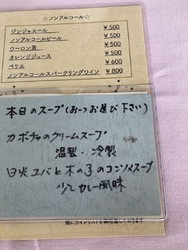 ＊ノンアルコール＊
ジンジャエール ￥500
ノンアルコールビール ￥500
ウーロン茶 ￥500
オレンジジュース ￥500
ペリエ ￥600
ノンアルコールスパークリングワイン ￥800
本日のスープ(お一つお選び下さい)
カボチャのクリームスープ
温製・冷製
日光ユバと木の子のコンソメスープ
少しカレー風味